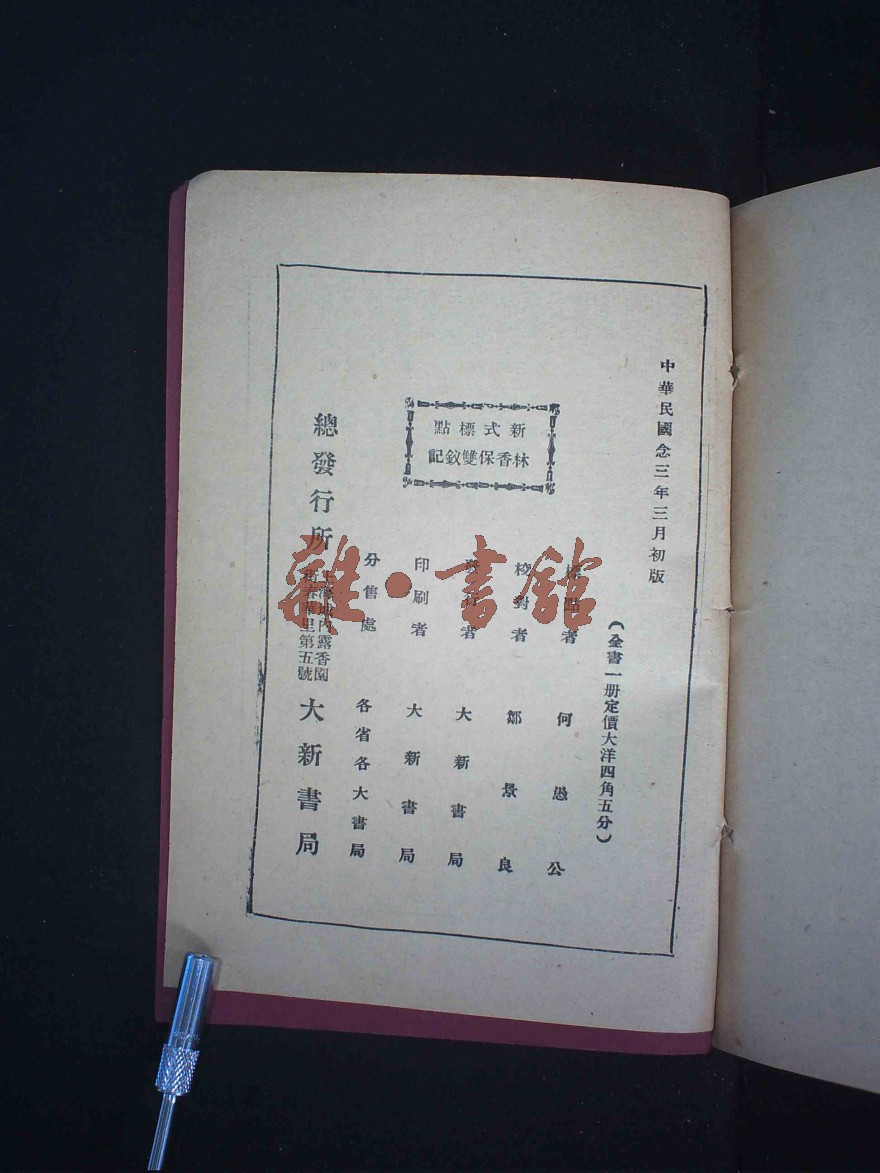 中華民國念三年三月初版
(全書一册定價大洋四角五分)
新式標點
林香保雙釵記
標點者 何愚公
校對者 鄒景良
發行者 大新書局
印刷者 大新書局
分售處 各省各大書局
總發行所 上海城內露香園街春華里第五號 大新書局
雜·書館